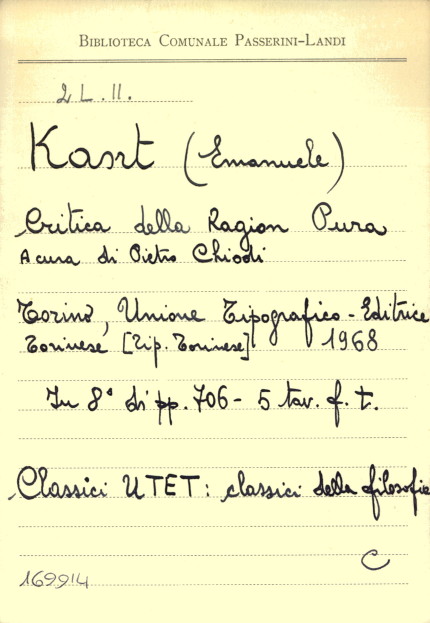 BIBLIOTECA COMUNALE PASSERINI-LANDI
2 L. II.
Kant (Emanuele)
Critica della Ragion Pura
A cura di Pietro Chiodi
Torino, Unione Tipografico-Editrice
Torinese [Tip. Torinese] 1968
In 8° di pp. 706 - 5 tav. f. t.
Classici UTET: classici della filosofia
C
169914